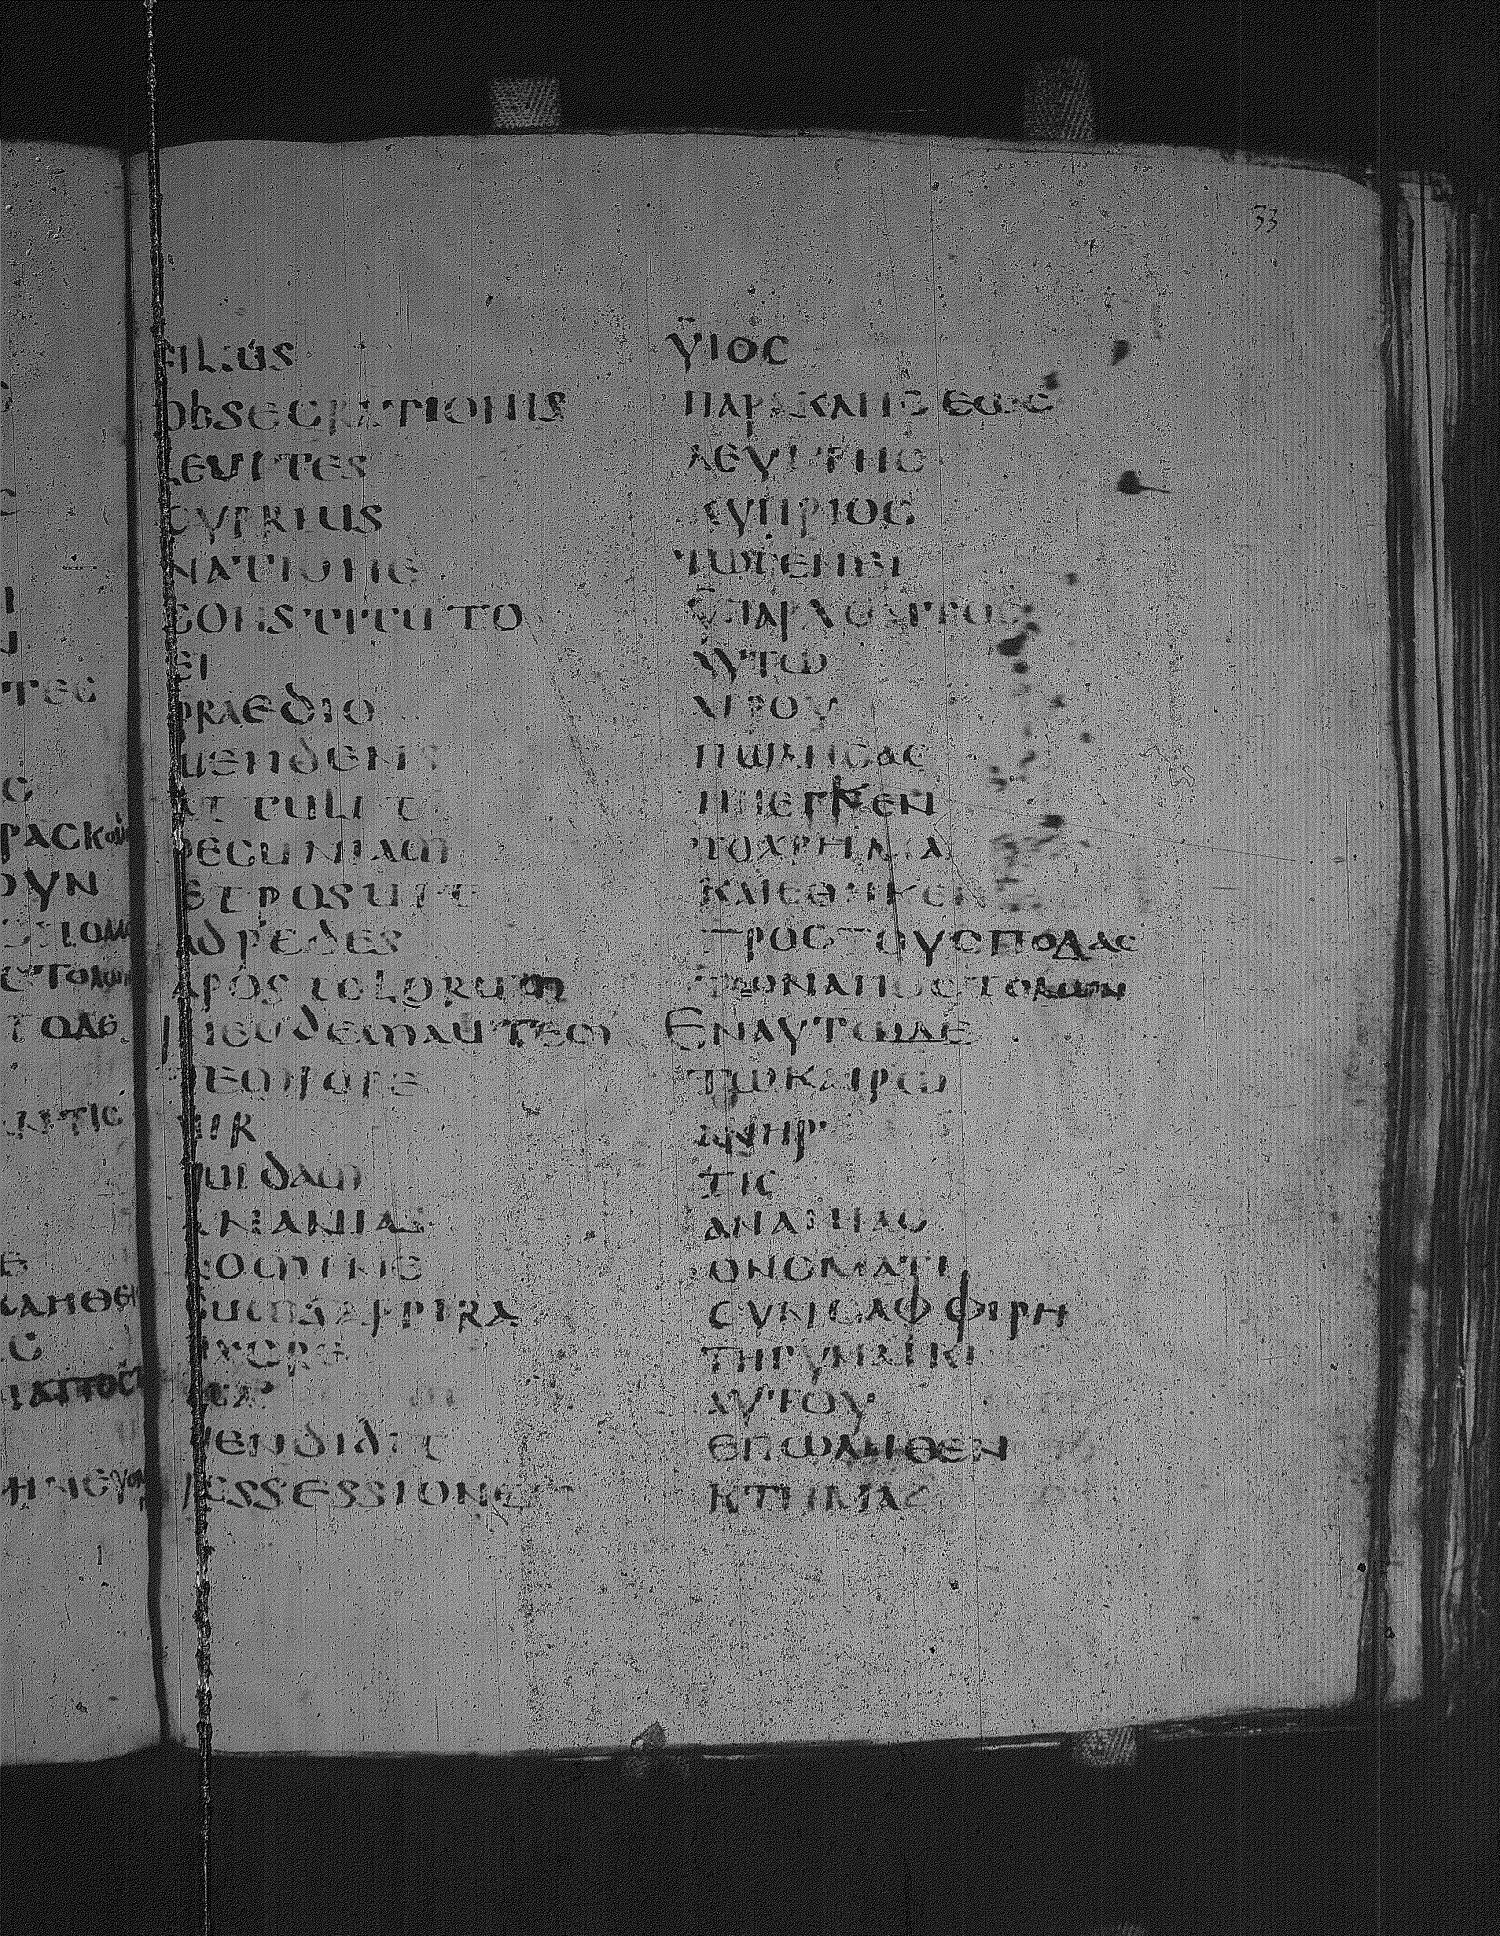 33
filius
obsecrationis
leuites
cyprius
natione
constituto
ei
praedio
uendens
attulit
pecuniam
et posuit
adpedes
apostolorum
ineodemautem
tempore
uir
quidam
ananias
nomine
cumsaffira
uxore
sua
uendidit
possessione
ΫΙΟC
ΠΑΡΑΚΛΗCΕΩC
ΛΕΥΙΤΗC
ΚΥΠΡΙΟC
ΤΩΓΕΝΕΙ
ΫΠΑΡΧΟΝΤΟC
ΑΥΤΩ
ΑΓΡΟΥ
ΠΩΛΗCΑC
ΗΝΕΓΚΕΝ
ΤΟΧΡΗΜΑ
ΚΑΙΕΘΗΚΕΝ
ΠΡΟCΤΟΥCΠΟΔΑC
ΤΩΝΑΠΟCΤΟΛΩΝ
ΕΝΑΥΤΩΔΕ
ΤΩΚΑΙΡΩ
ΑΝΗΡ
ΤΙC
ΑΝΑΝΙΑC
ΟΝΟΜΑΤΙ
CΥΝCΑΦΦΙΡΗ
ΤΗΓΥΝΑΙΚΙ
ΑΥΤΟΥ
ΕΠΩΛΗΘΕΝ
ΚΤΗΜΑ